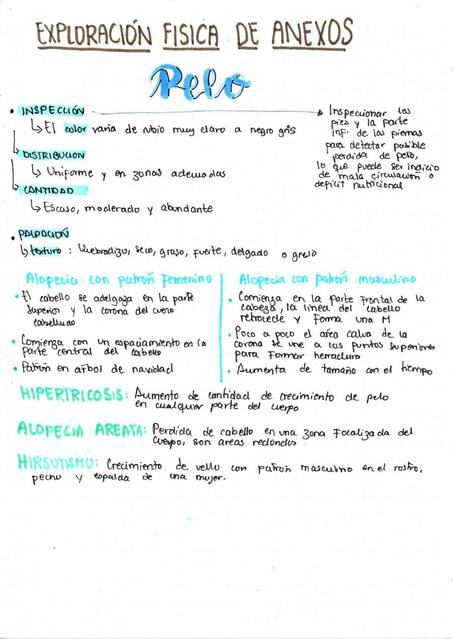 EXPLORACIÓN FISICA DE ANEXOS
Pelo
• INSPECCIÓN
↳ El color varia de rubio muy claro a negro gris
↳ DISTRIBUCION
↳ Uniforme y en zonas adecuadas
CANTIDAD
↳ Escaso, moderado y abundante
Inspeccionar los
pies y la parte
inf. de las piernas
para detectar posible
perdida de pelo,
lo que puede ser indicio
de mala circulación o
deficit nutricional
• PALPACIÓN
↳ textura: Quebradizo, seco, graso, fuerte, delgado o greso
Alopecia con patrón Femenino
• El cabello se adelgaza en la parte
superior y la corona del cuero
cabelludo
• Comienza con un espaciamiento en la
parte central del cabello
• Patrón en arbol de navidad
Alopecia con patrón masculino
• Comienza en la parte frontal de la
cabeza, la linea del cabello
retrocede y forma una M
• Poco a poco el area calva de la
corona se une a los puntos superiores
para formar herradura
• Aumenta de tamaño con el tiempo
HIPERTRICOSIS: Aumento de cantidad de crecimiento de pelo
en cualquier parte del cuerpo
ALOPECIA AREATA: Perdida de cabello en una zona focalizada del
cuerpo, son areas redondas
HIRSUTISMO: Crecimiento de vello con patron masculino en el rostro,
pecho y espalda de una mujer.